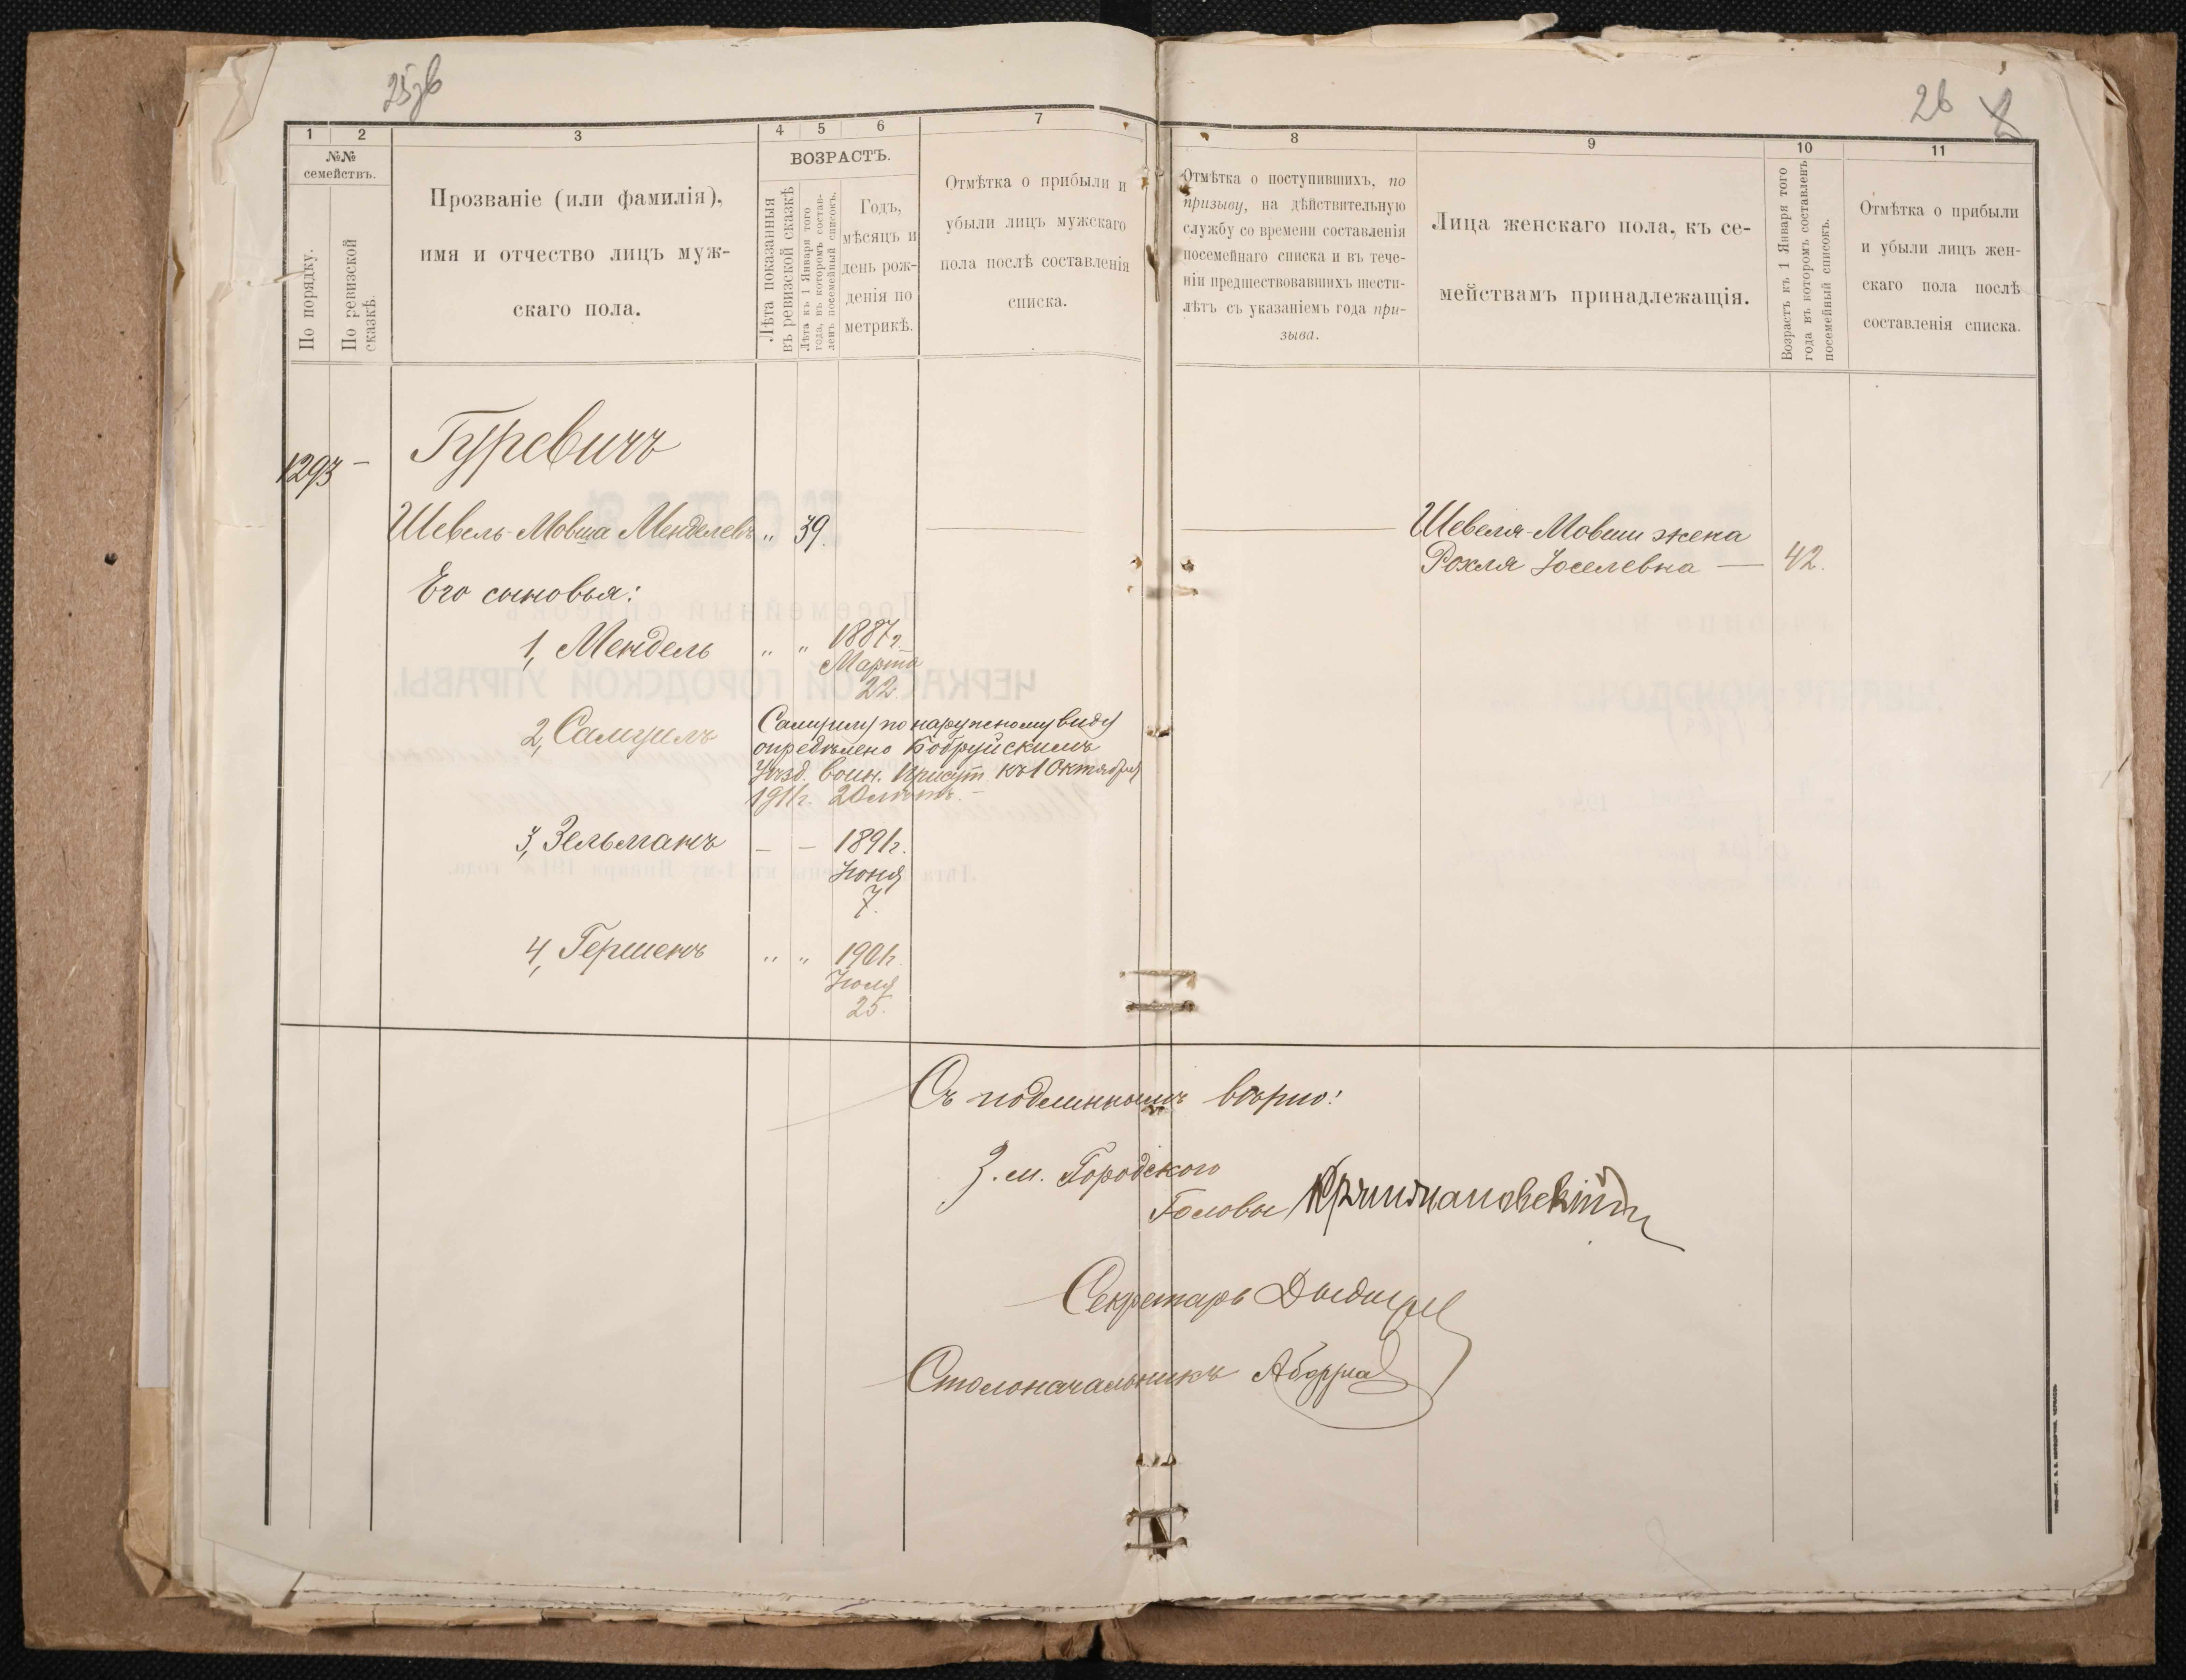 25зв
26
1 2 3 4 5 6 7
№№ семействъ.
По порядку.
По ревизской сказкѣ.
Прозваніе (или фамилія),
имя и отчество лицъ муж-
скаго пола.
ВОЗРАСТЪ.
Лѣта показанныя
въ ревизской сказкѣ
Лѣта къ 1 Января того
года, въ которомъ состав-
ленъ посемейный списокъ.
Годъ,
мѣсяцъ и
день рож-
денія по
метрикѣ.
Отмѣтка о прибыли и
убыли лицъ мужскаго
пола послѣ составленія
списка.
8 9 10 11
Отмѣтка о поступившихъ, по
призыву, на дѣйствительную
службу со времени составленія
посемейнаго списка и въ тече-
ніи предшествовавшихъ шести-
лѣтъ съ указаніемъ года при-
зыва.
Лица женскаго пола, къ се-
мействамъ принадлежащія.
Возрастъ къ 1 Января того
года въ которомъ составленъ
посемейный списокъ.
Отмѣтка о прибыли
и убыли лицъ жен-
скаго пола послѣ
составленія списка.
1293 —
Гуревичъ
Шевель-Мовша Менделевъ „ 39.
Шевеля-Мовши жена
Рохля Іоселевна — 42.
Его сыновья:
1, Мендель „ „ 1887г.
Марта
22.
2, Самуилъ
Самуилу по наружному виду
опредѣлено Бобруйскимъ
Уѣзд. Воин. Присут. къ 1 Октября
1911г. 20 лѣтъ. —
3, Зельманъ — — 1891г.
Іюня
7.
4, Гершенъ „ „ 1901г.
Іюля
25.
Съ подлиннымъ вѣрно:
З. м. Городского
Головы
Секретарь
Столоначальникъ